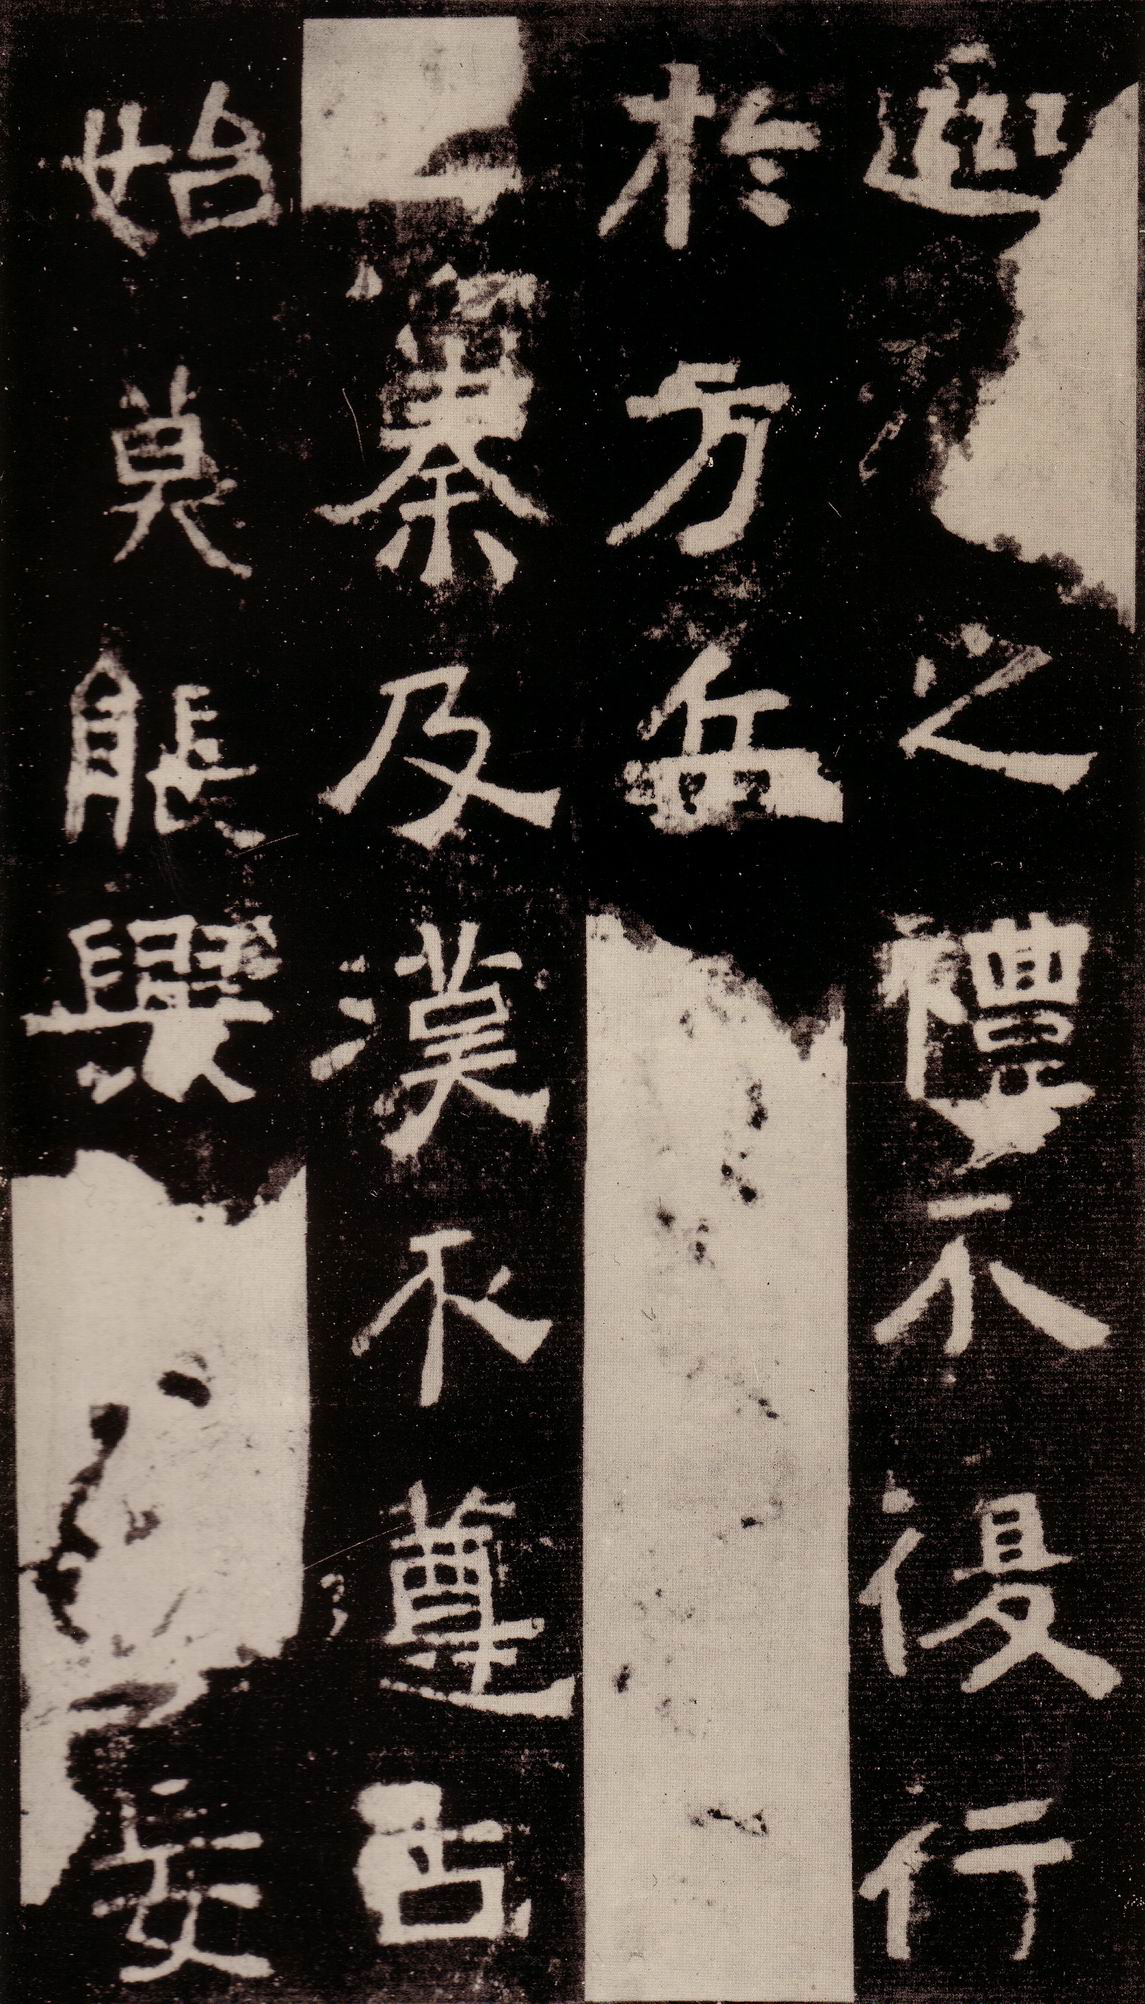 巡之禮不復行
於方岳
秦及漢不遵古
始莫能興妄